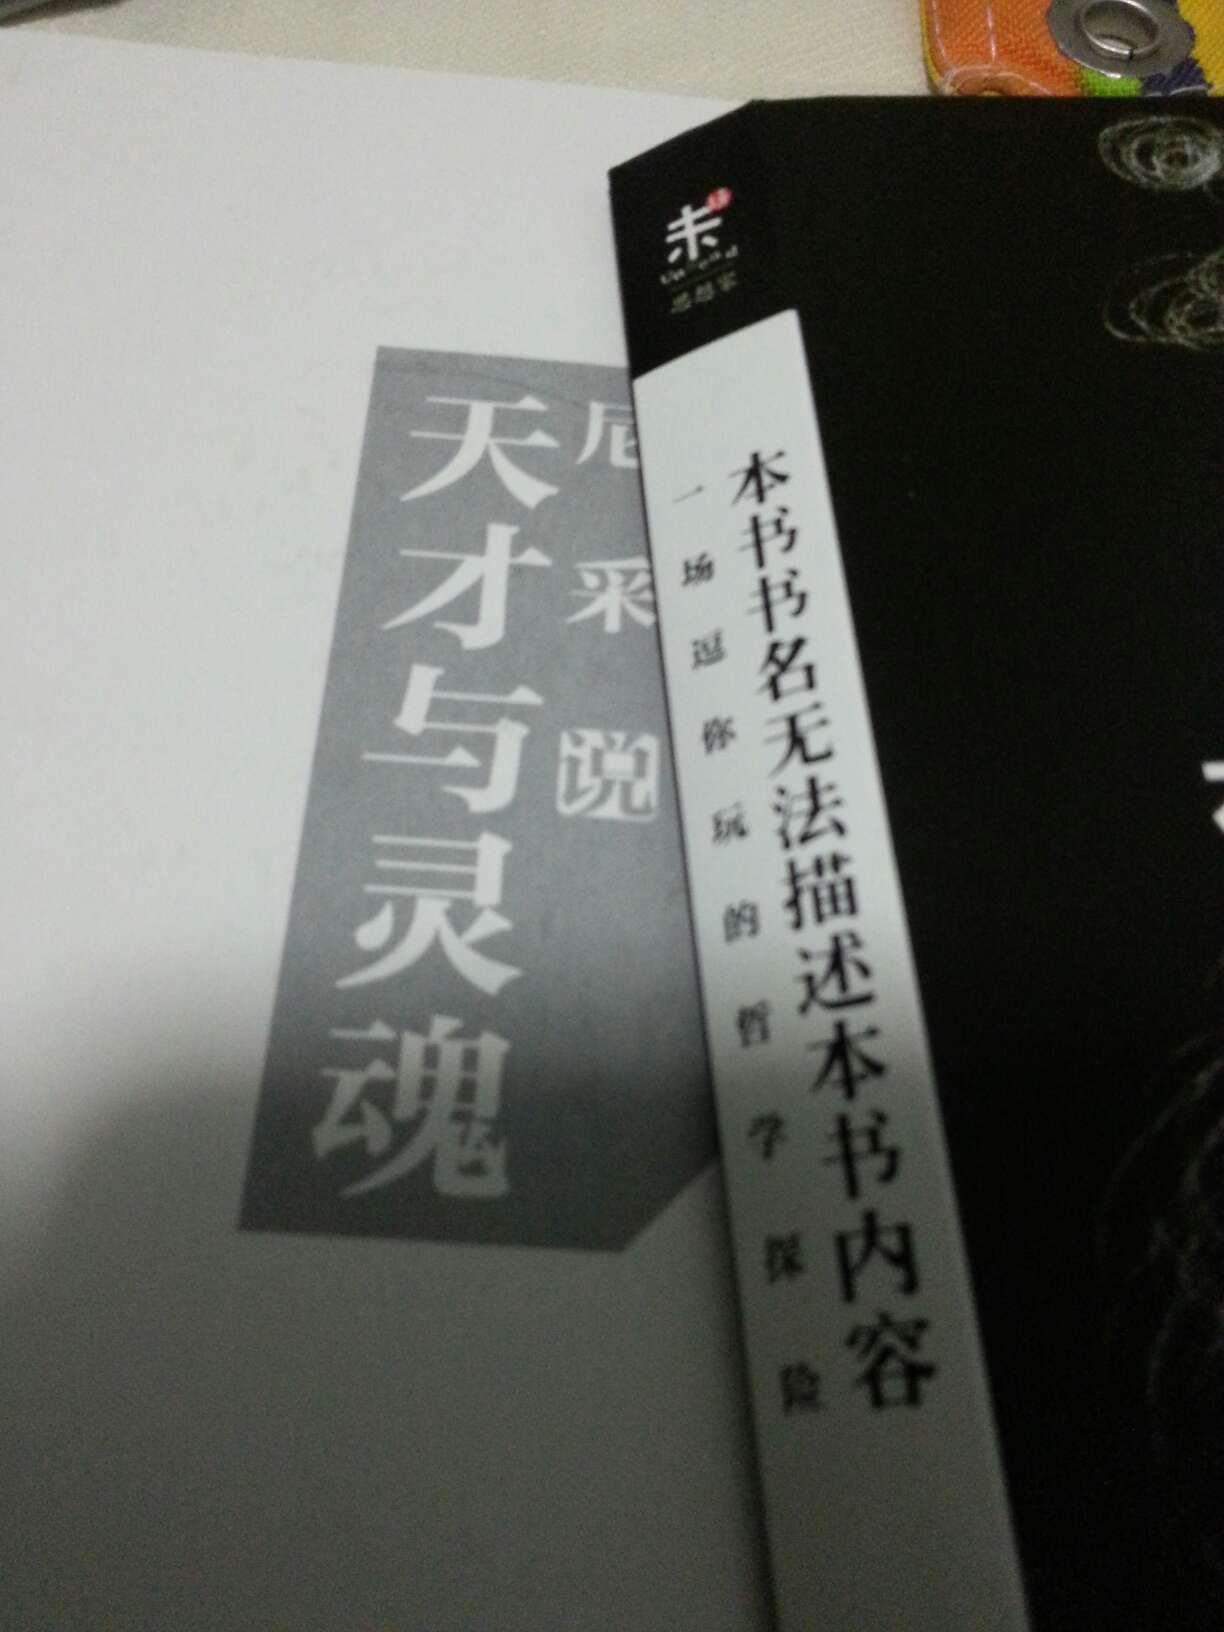 尼采说
天才与灵魂
未读
UnRead
思想家
本书书名无法描述本书内容
一场逗你玩的哲学探险